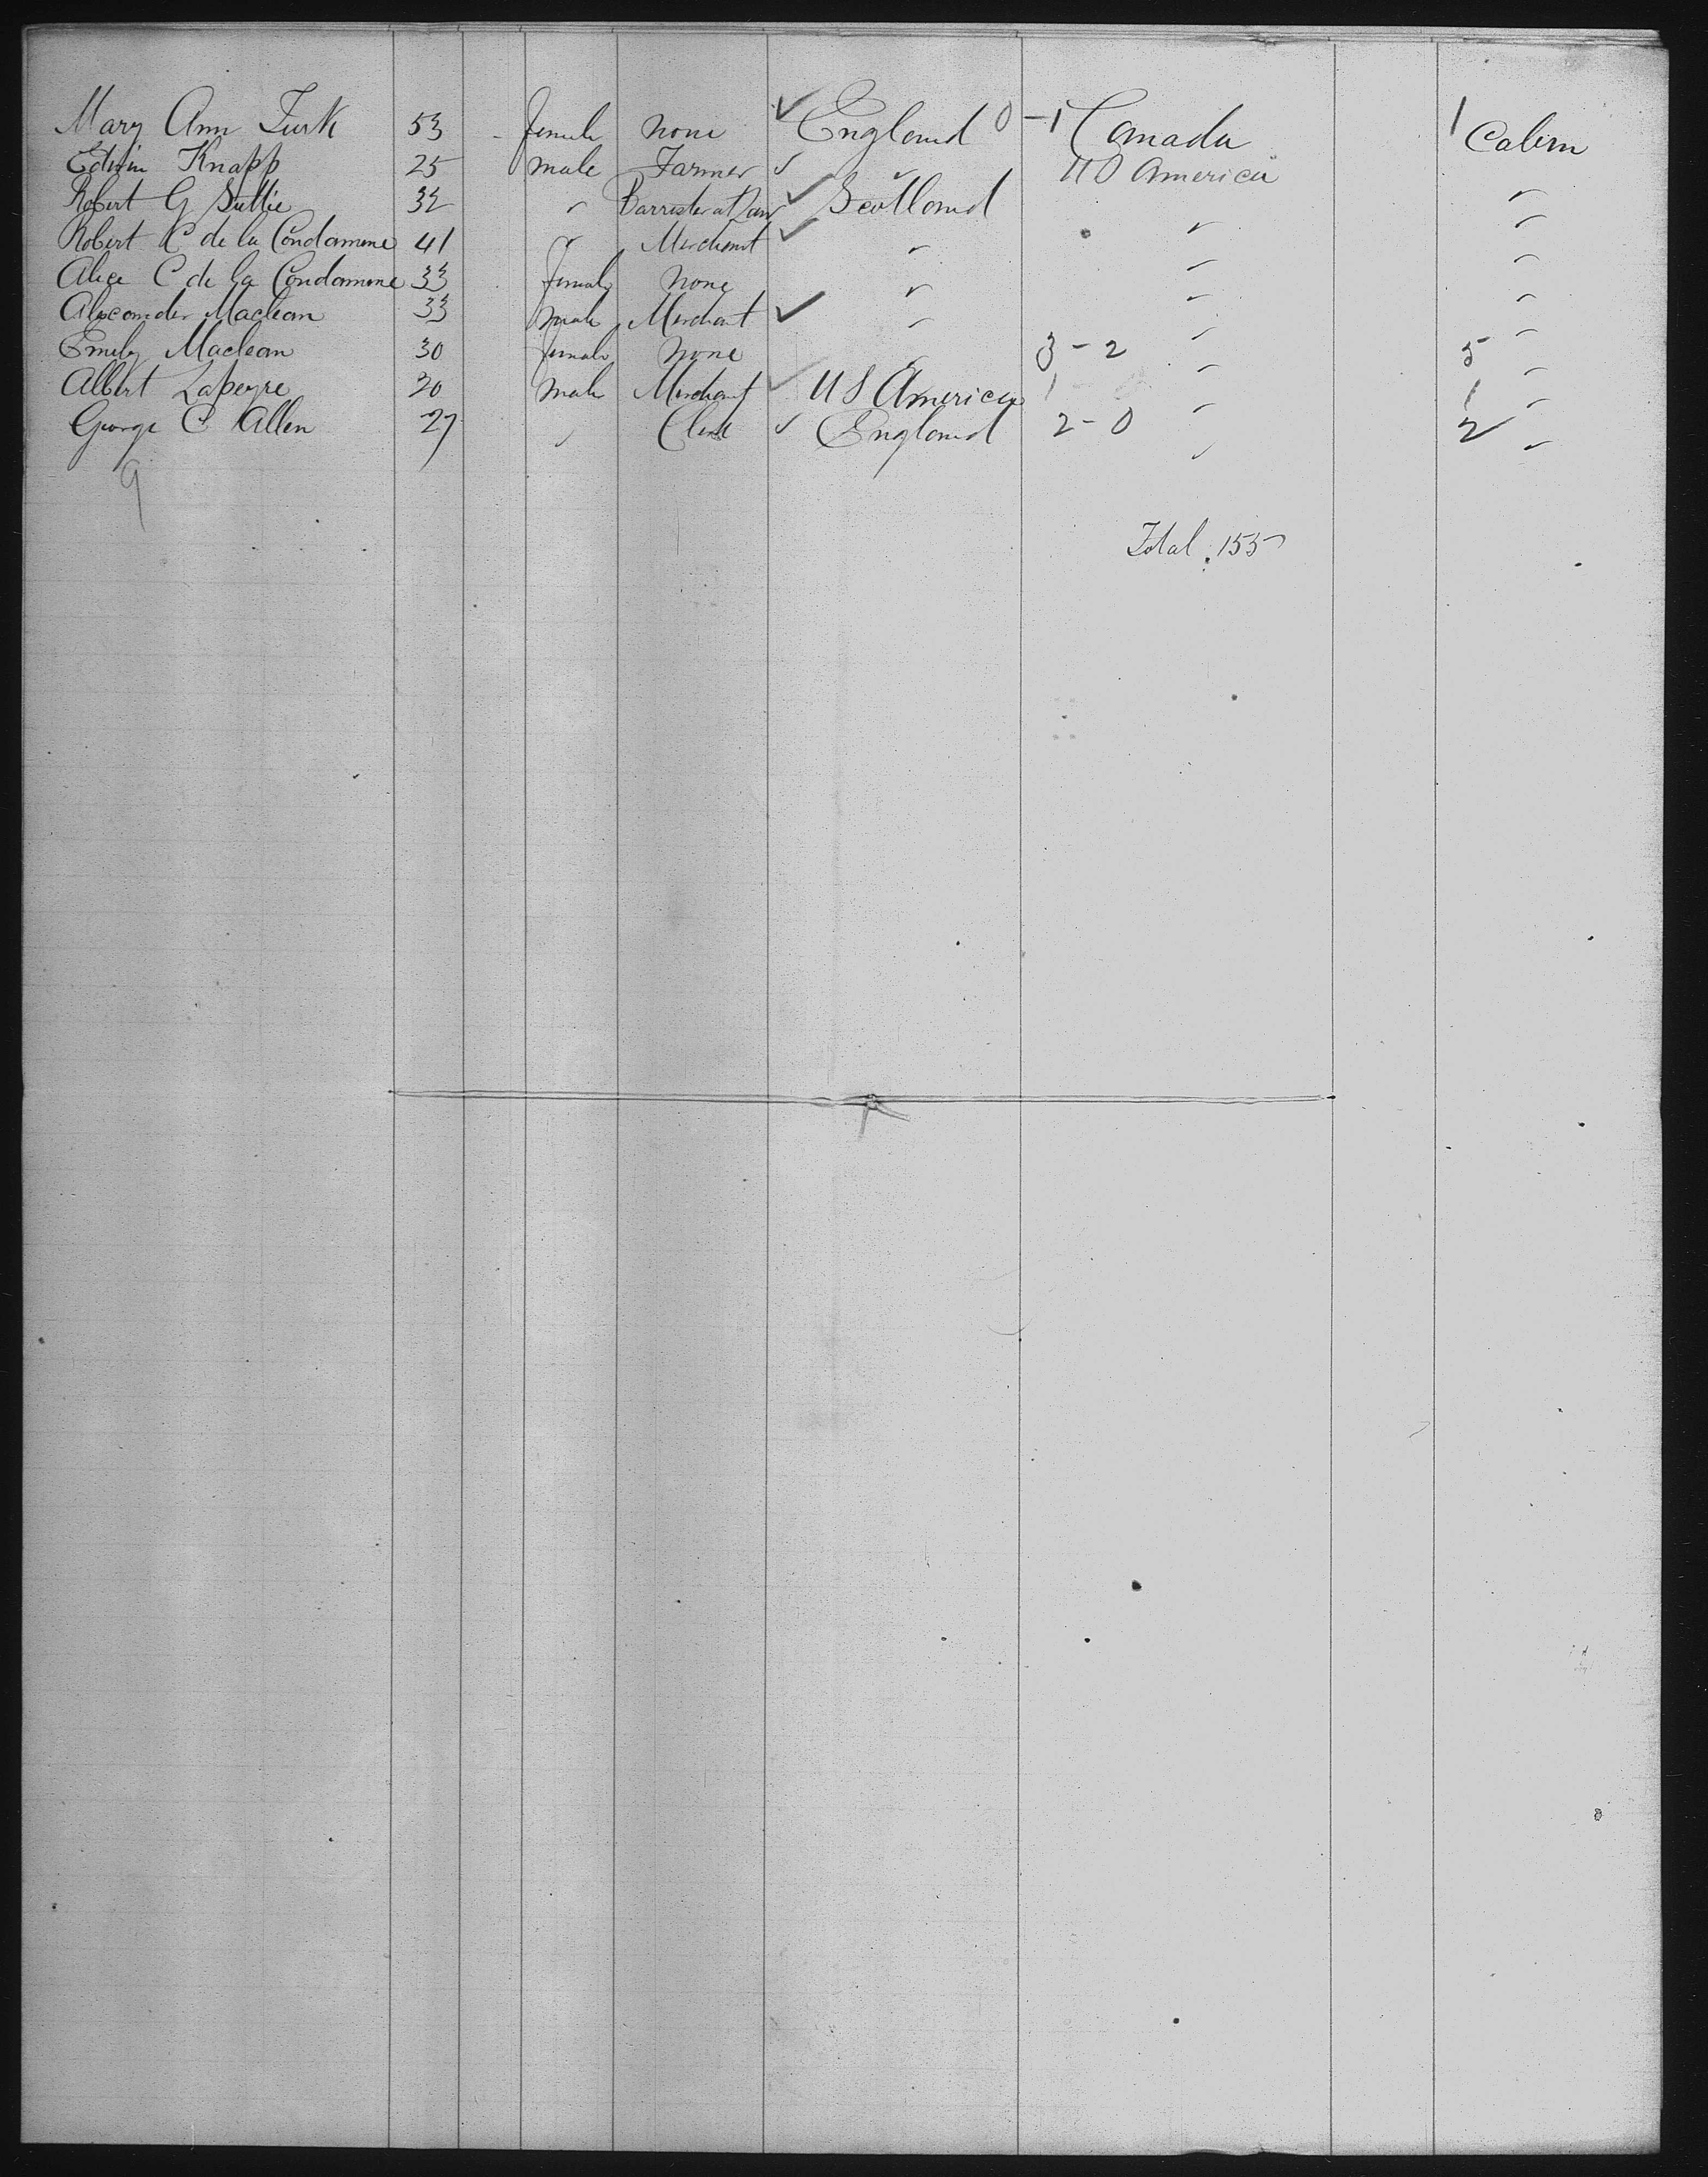 Mary Ann Turk 53 female none ✓ England 0 - 1 Canada 1 Cabin
Edwin Knapp 25 male Farmer ✓ " U S America "
Robert G Suttie 32 " Barrister at Law ✓ Scotland " "
Robert C de la Condamine 41 " Merchant ✓ " " "
Alice C de la Condamine 33 female none " " "
Alexander Maclean 33 male Merchant ✓ " " "
Emily Maclean 30 female none " 3 - 2 " 5 "
Albert Lapeyre 20 male Merchant ✓ U S America 1 " 1 "
George C Allen 27 " Clerk ✓ England 2 - 0 " 2 "
9
Total 155